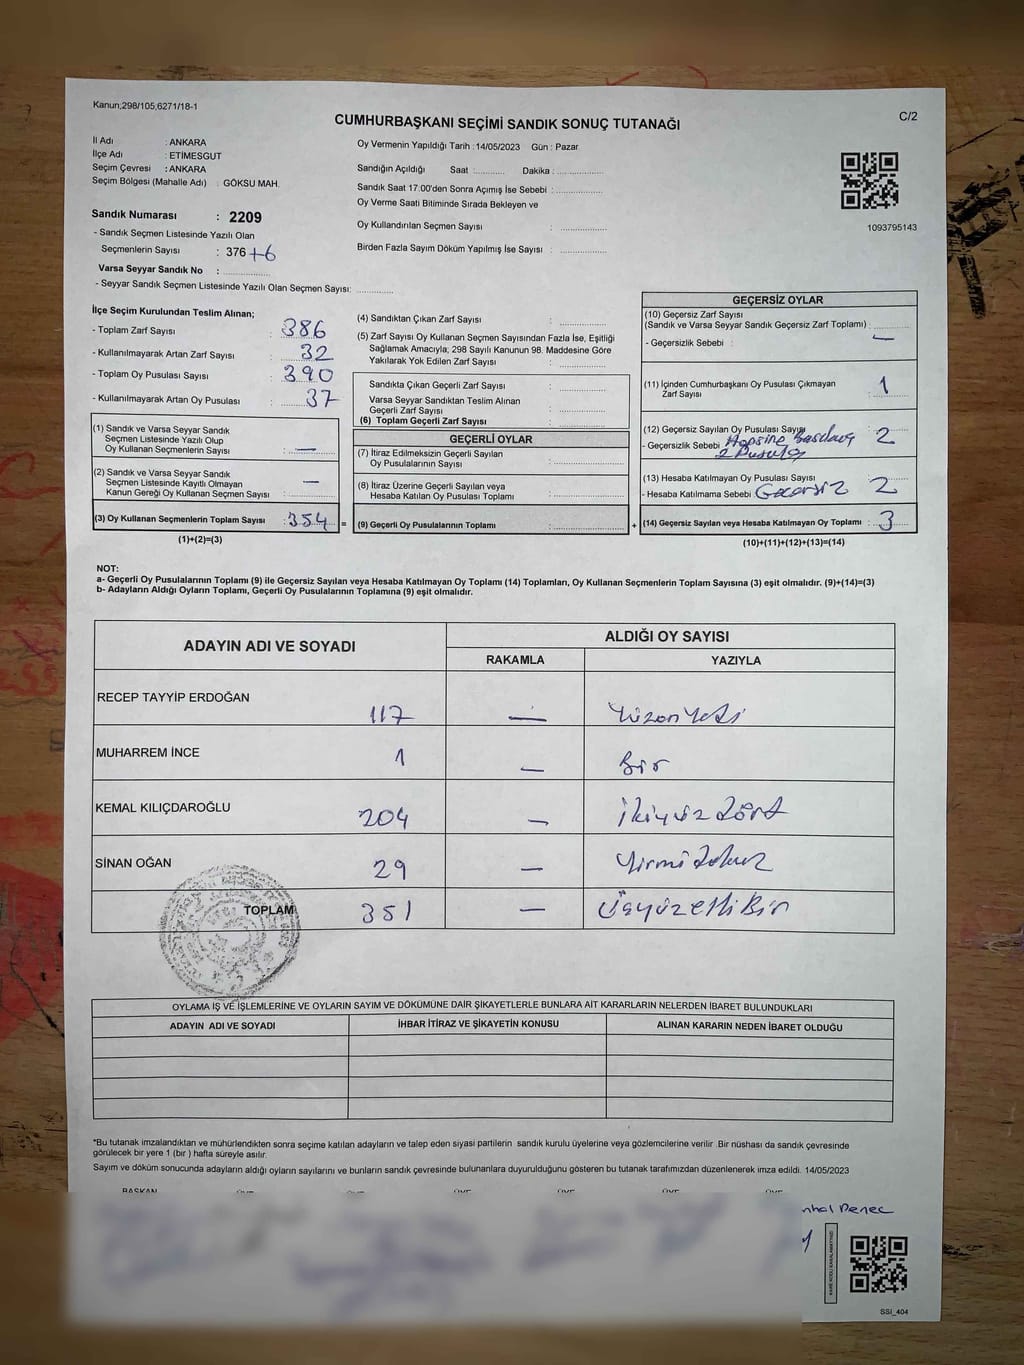 Kanun;298/105,6271/18-1
C/2
CUMHURBAŞKANI SEÇİMİ SANDIK SONUÇ TUTANAĞI
İl Adı : ANKARA
İlçe Adı : ETİMESGUT
Seçim Çevresi : ANKARA
Seçim Bölgesi (Mahalle Adı) : GÖKSU MAH.
Sandık Numarası : 2209
- Sandık Seçmen Listesinde Yazılı Olan
Seçmenlerin Sayısı : 376 +6
Varsa Seyyar Sandık No : ..............
- Seyyar Sandık Seçmen Listesinde Yazılı Olan Seçmen Sayısı: ..............
Oy Vermenin Yapıldığı Tarih : 14/05/2023 Gün : Pazar
Sandığın Açıldığı Saat ........... Dakika : ..............
Sandık Saat 17:00'den Sonra Açımış İse Sebebi : ..............
Oy Verme Saati Bitiminde Sırada Bekleyen ve
Oy Kullandırılan Seçmen Sayısı : ..............
Birden Fazla Sayım Döküm Yapılmış İse Sayısı : ..............
1093795143
İlçe Seçim Kurulundan Teslim Alınan;
- Toplam Zarf Sayısı : 386
- Kullanılmayarak Artan Zarf Sayısı : 32
- Toplam Oy Pusulası Sayısı : 390
- Kullanılmayarak Artan Oy Pusulası : 37
(1) Sandık ve Varsa Seyyar Sandık
Seçmen Listesinde Yazılı Olup
Oy Kullanan Seçmenlerin Sayısı : —
(2) Sandık ve Varsa Seyyar Sandık
Seçmen Listesinde Kayıtlı Olmayan
Kanun Gereği Oy Kullanan Seçmen Sayısı : —
(3) Oy Kullanan Seçmenlerin Toplam Sayısı : 354 =
(1)+(2)=(3)
(4) Sandıktan Çıkan Zarf Sayısı : ..............
(5) Zarf Sayısı Oy Kullanan Seçmen Sayısından Fazla İse, Eşitliği
Sağlamak Amacıyla; 298 Sayılı Kanunun 98. Maddesine Göre
Yakılarak Yok Edilen Zarf Sayısı : ..............
Sandıkta Çıkan Geçerli Zarf Sayısı : ..............
Varsa Seyyar Sandıktan Teslim Alınan
Geçerli Zarf Sayısı : ..............
(6) Toplam Geçerli Zarf Sayısı : ..............
GEÇERLİ OYLAR
(7) İtiraz Edilmeksizin Geçerli Sayılan
Oy Pusulalarının Sayısı : ..............
(8) İtiraz Üzerine Geçerli Sayılan veya
Hesaba Katılan Oy Pusulası Toplamı : ..............
(9) Geçerli Oy Pusulalarının Toplamı : .............. +
GEÇERSİZ OYLAR
(10) Geçersiz Zarf Sayısı
(Sandık ve Varsa Seyyar Sandık Geçersiz Zarf Toplamı) : ..........
- Geçersizlik Sebebi : —
(11) İçinden Cumhurbaşkanı Oy Pusulası Çıkmayan
Zarf Sayısı : 1
(12) Geçersiz Sayılan Oy Pusulası Sayısı : 2
- Geçersizlik Sebebi
2 Pusula
(13) Hesaba Katılmayan Oy Pusulası Sayısı : 2
- Hesaba Katılmama Sebebi Geçersiz
(14) Geçersiz Sayılan veya Hesaba Katılmayan Oy Toplamı : 3
(10)+(11)+(12)+(13)=(14)
NOT:
a- Geçerli Oy Pusulalarının Toplamı (9) ile Geçersiz Sayılan veya Hesaba Katılmayan Oy Toplamı (14) Toplamları, Oy Kullanan Seçmenlerin Toplam Sayısına (3) eşit olmalıdır. (9)+(14)=(3)
b- Adayların Aldığı Oyların Toplamı, Geçerli Oy Pusulalarının Toplamına (9) eşit olmalıdır.
ADAYIN ADI VE SOYADI
ALDIĞI OY SAYISI
RAKAMLA YAZIYLA
RECEP TAYYİP ERDOĞAN 117 — Yüzonyedi
MUHARREM İNCE 1 — Bir
KEMAL KILIÇDAROĞLU 204 — İkiyüz dört
SİNAN OĞAN 29 — Yirmidokuz
TOPLAM 351 — Üçyüzelli Bir
OYLAMA İŞ VE İŞLEMLERİNE VE OYLARIN SAYIM VE DÖKÜMÜNE DAİR ŞİKAYETLERLE BUNLARA AİT KARARLARIN NELERDEN İBARET BULUNDUKLARI
ADAYIN ADI VE SOYADI İHBAR İTİRAZ VE ŞİKAYETİN KONUSU ALINAN KARARIN NEDEN İBARET OLDUĞU
*Bu tutanak imzalandıktan ve mühürlendikten sonra seçime katılan adayların ve talep eden siyasi partilerin sandık kurulu üyelerine veya gözlemcilerine verilir .Bir nüshası da sandık çevresinde
görülecek bir yere 1 (bir ) hafta süreyle asılır.
Sayım ve döküm sonucunda adayların aldığı oyların sayılarını ve bunların sandık çevresinde bulunanlara duyurulduğunu gösteren bu tutanak tarafımızdan düzenlenerek imza edildi. 14/05/2023
BAŞKAN ÜYE ÜYE ÜYE ÜYE ÜYE ÜYE
SSİ_404